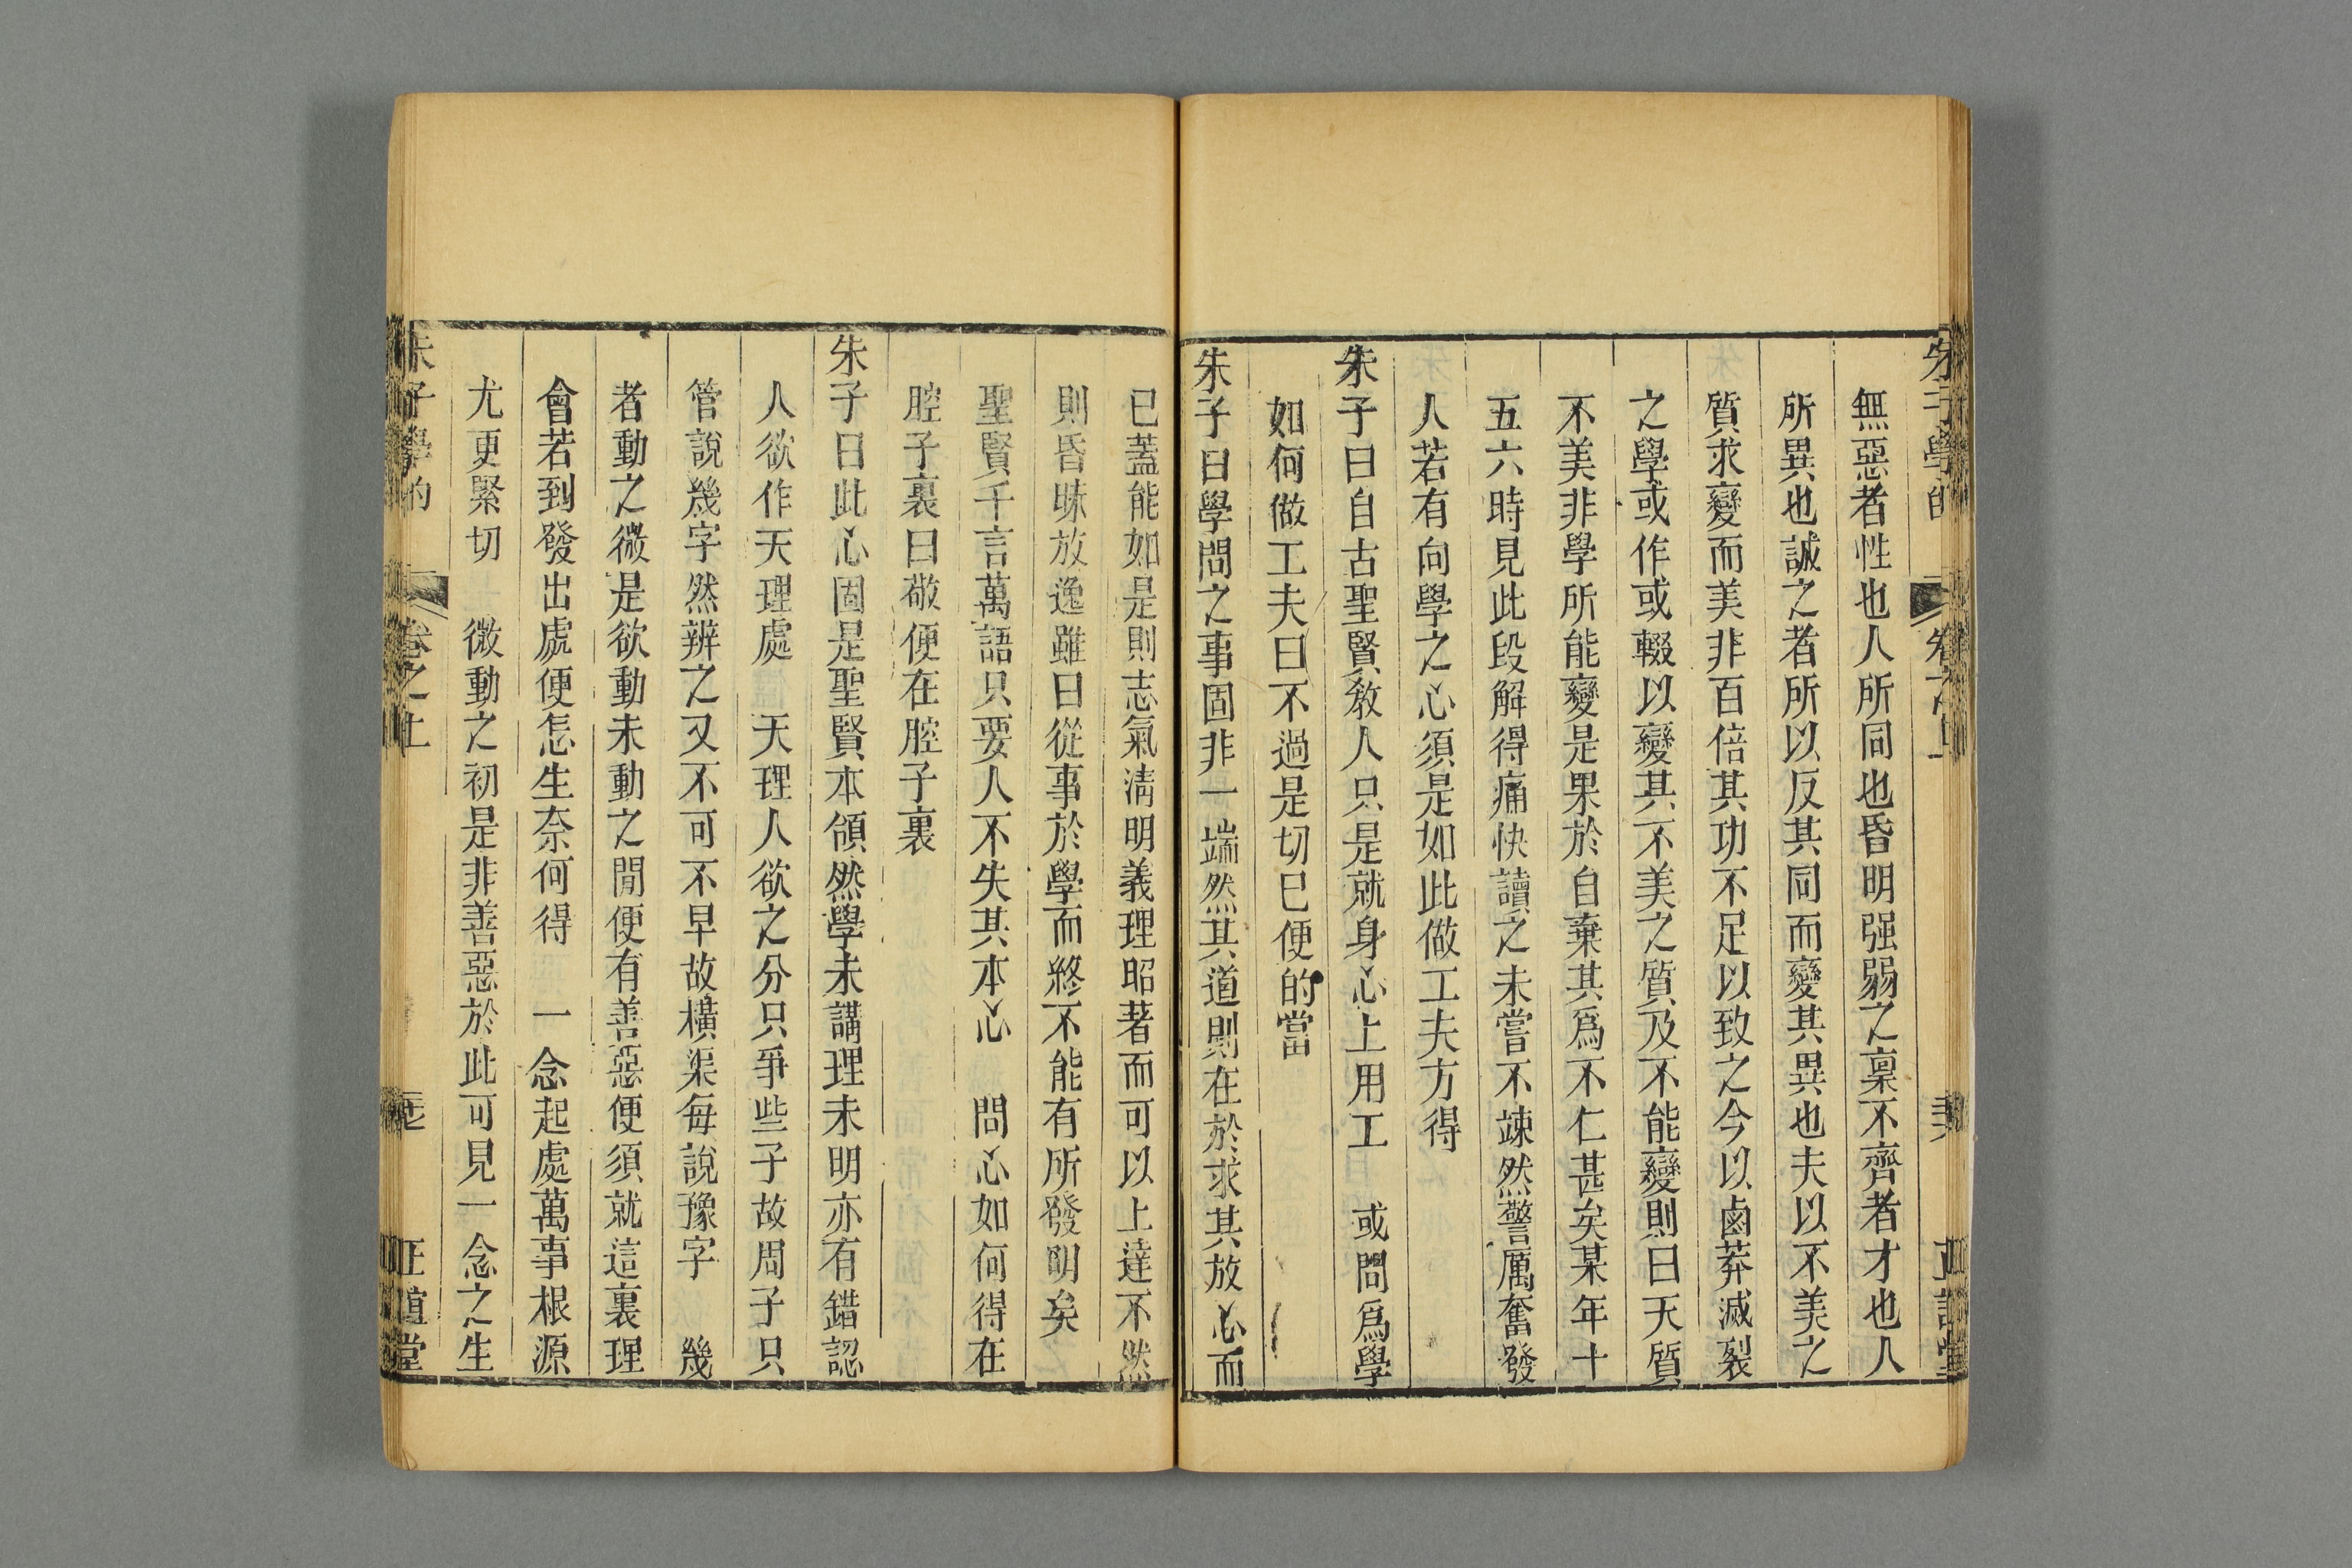 朱子學的 卷之上 正誼堂
無惡者性也人所同也昏明强弱之稟不齊者才也人
所異也誠之者所以反其同而變其異也夫以不美之
質求變而美非百倍其功不足以致之今以鹵莽滅裂
之學或作或輟以變其不美之質及不能變則曰天質
不美非學所能變是果於自棄其爲不仁甚矣某年十
五六時見此段解得痛快讀之未嘗不竦然警厲奮發
人若有向學之心須是如此做工夫方得
朱子曰自古聖賢敎人只是就身心上用工　或問爲學
如何做工夫曰不過是切已便的當
朱子曰學問之事固非一端然其道則在於求其放心而
已蓋能如是則志氣淸明義理昭著而可以上達不然
則昏昧放逸雖曰從事於學而終不能有所發明矣
聖賢千言萬語只要人不失其本心　問心如何得在
腔子裏曰敬便在腔子裏
朱子曰此心固是聖賢本領然學未講理未明亦有錯認
人欲作天理處　天理人欲之分只爭些子故周子只
管說幾字然辨之又不可不早故橫渠每說豫字　幾
者動之微是欲動未動之閒便有善惡便須就這裏理
會若到發出處便怎生奈何得　一念起處萬事根源
尤更緊切　微動之初是非善惡於此可見一念之生
朱子學的 卷之上 正誼堂